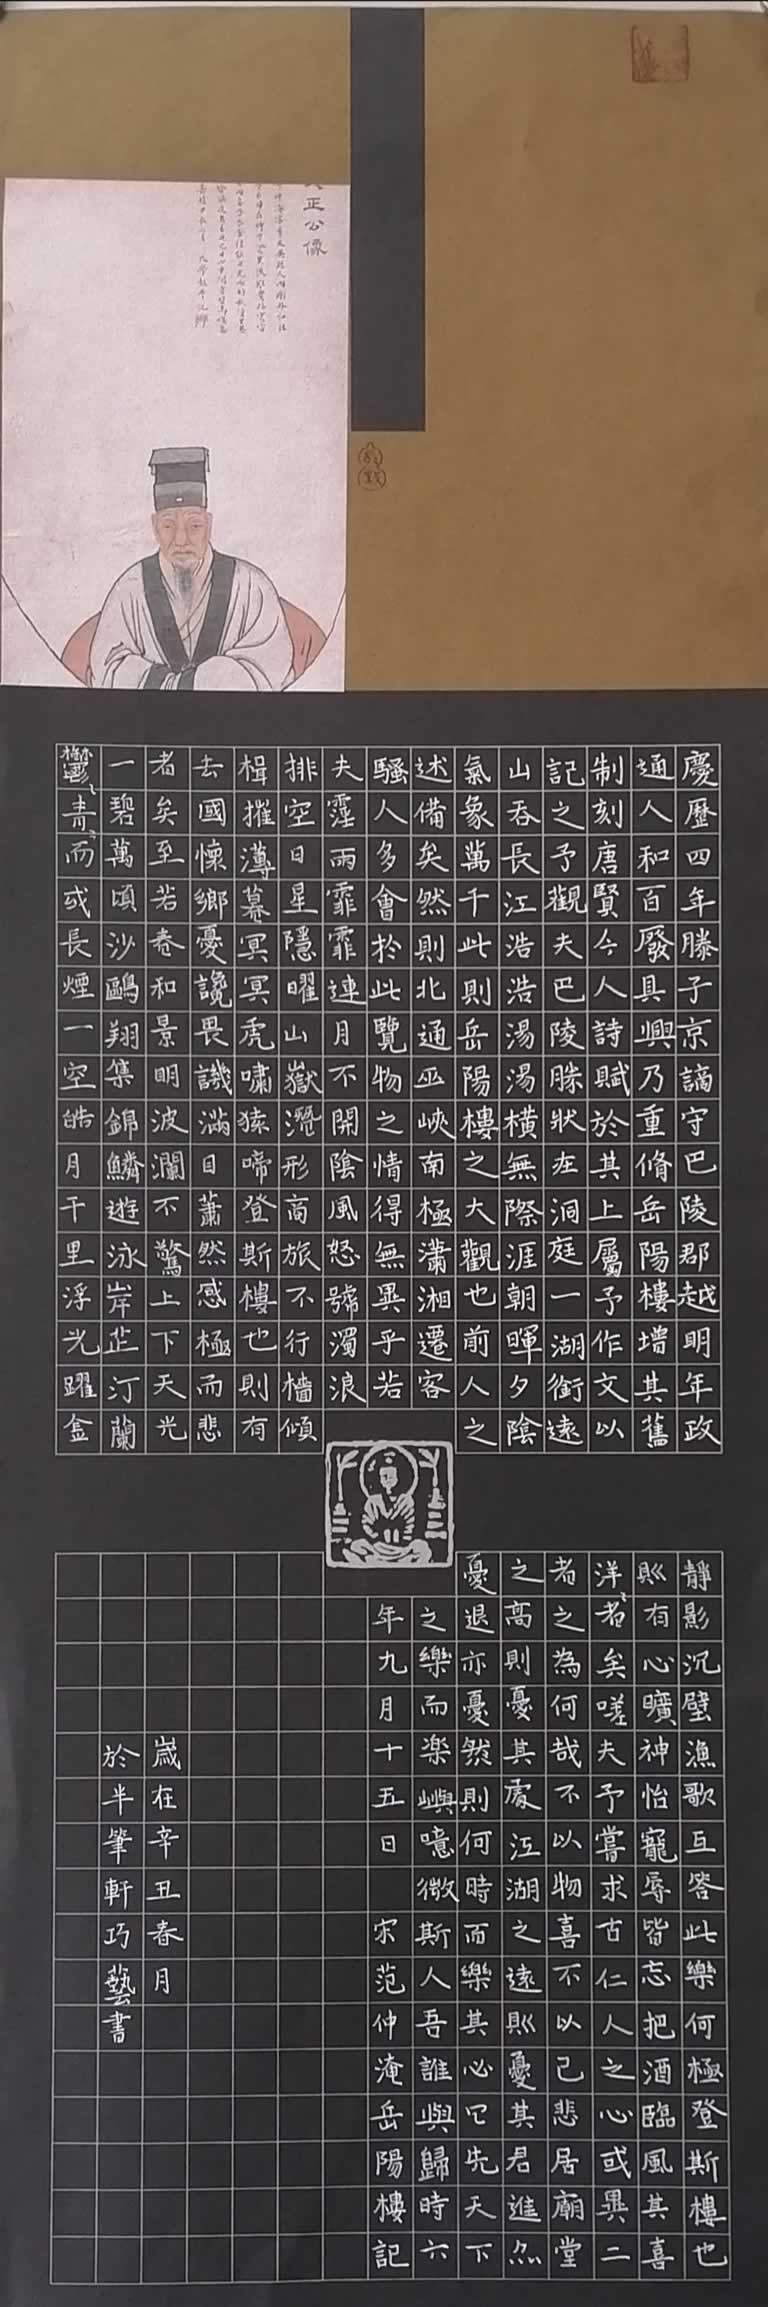 正公像
慶歷四年滕子京謫守巴陵郡越明年政
通人和百廢具興乃重脩岳陽樓增其舊
制刻唐賢今人詩賦於其上屬予作文以
記之予觀夫巴陵勝狀在洞庭一湖銜遠
山吞長江浩浩湯湯橫無際涯朝暉夕陰
氣象萬千此則岳陽樓之大觀也前人之
述備矣然則北通巫峽南極瀟湘遷客
騷人多會於此覽物之情得無異乎若
夫霪雨霏霏連月不開陰風怒號濁浪
排空日星隱曜山嶽潛形商旅不行檣傾
楫摧薄暮冥冥虎嘯猿啼登斯樓也則有
去國懷鄉憂讒畏譏滿目蕭然感極而悲
者矣至若春和景明波瀾不驚上下天光
一碧萬頃沙鷗翔集錦鱗遊泳岸芷汀蘭
鬱〻青〻而或長煙一空皓月千里浮光躍金
靜影沉璧漁歌互答此樂何極登斯樓也
則有心曠神怡寵辱皆忘把酒臨風其喜
洋〻者矣嗟夫予嘗求古仁人之心或異二
者之為何哉不以物喜不以己悲居廟堂
之高則憂其處江湖之遠則憂其君進亦
憂退亦憂然則何時而樂其必它先天下
之樂而樂嶼噫微斯人吾誰與歸時六
年九月十五日 宋范仲淹岳陽樓記
歲在辛丑春月
於半筆軒巧藝書